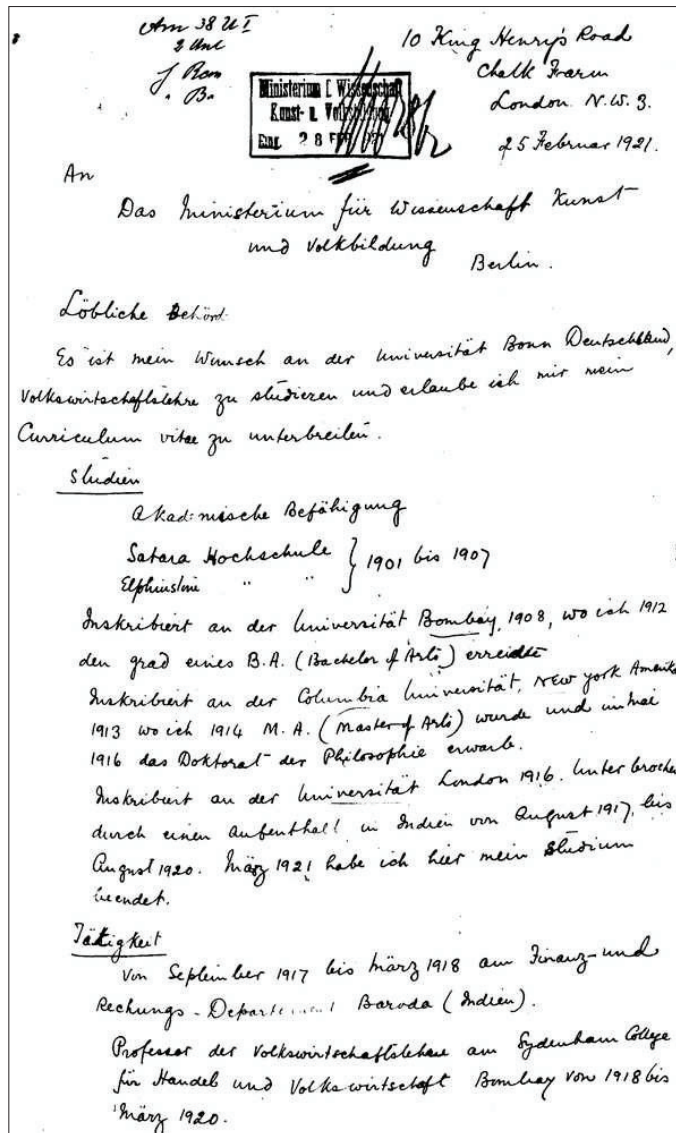 Am 38 U I
10 King Henry's Road
Chalk Farm
London N.W. 3.
Ministerium f. Wissenschaft
Kunst- u. Volksbildung
Eing. 28 FEB 1921
25 Februar 1921.
An
Das Ministerium für Wissenschaft Kunst
und Volkbildung
Berlin.
Löbliche Behörd
Es ist mein Wunsch an der Universität Bonn Deutschland,
Volkswirtschaftslehre zu studieren und erlaube ich mir mein
Curriculum vitae zu unterbreiten.
Studien
Akademische Befähigung
Satara Hochschule } 1901 bis 1907
Elphinstone " "
Inskribiert an der Universität Bombay, 1908, wo ich 1912
den grad eines B.A. (Bachelor of Arts) erreichte
Inskribiert an der Columbia Universität, New York Amerika
1913 wo ich 1914 M.A. (Master of Arts) wurde und im Mai
1916 das Doktorat der Philosophie erwarb.
Inskribiert an der Universität London 1916. Unterbrochen
durch einen Aufenthalt in Indien von August 1917, bis
August 1920. März 1921 habe ich hier mein Studium
beendet.
Tätigkeit
Von September 1917 bis März 1918 am Finanz- und
Rechungs-Departement Baroda (Indien).
Professor der Volkswirtschaftslehre am Sydenham College
für Handel und Volkswirtschaft Bombay von 1918 bis
März 1920.